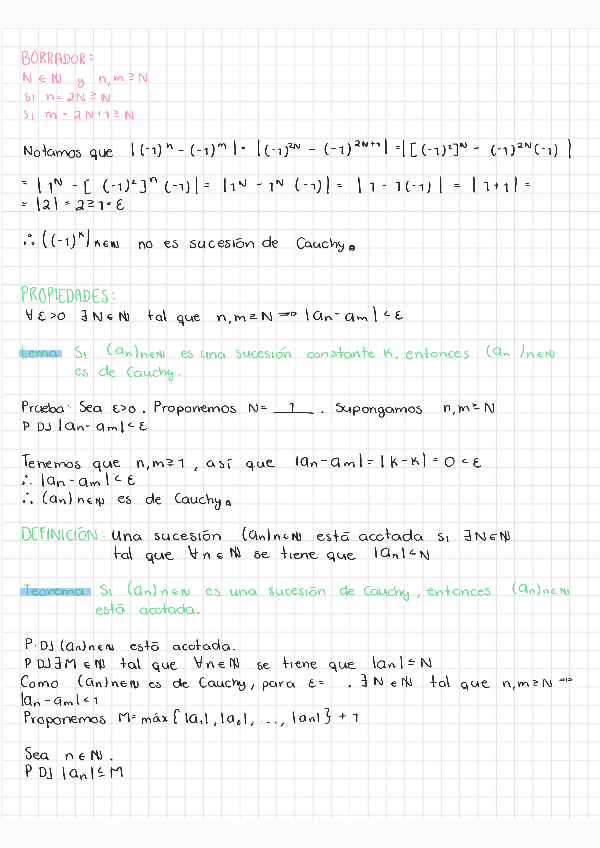 BORRADOR:
N ∈ ℕ y n,m ≥ N
Si n = 2N ≥ N
Si m = 2N+1 ≥ N
Notamos que |(-1)ⁿ - (-1)ᵐ| = |(-1)²ᴺ - (-1)²ᴺ⁺¹| = |[(-1)²]ᴺ - (-1)²ᴺ(-1)|
= |1ᴺ - [(-1)²]ⁿ(-1)| = |1ᴺ - 1ᴺ(-1)| = |1 - 1(-1)| = |1+1| =
= |2| = 2 ≥ 1 = ε
∴ ((-1)ᴷ)ₖ∈ℕ no es sucesión de Cauchy.
PROPIEDADES:
∀ε>0 ∃N∈ℕ tal que n,m ≥ N ⇒ |an - am| < ε
Lema Si (an)n∈ℕ es una sucesión constante K, entonces (an)n∈ℕ
es de Cauchy.
Prueba: Sea ε>0. Proponemos N= 1. Supongamos n,m ≥ N
P DJ |an - am| < ε
Tenemos que n,m ≥ 1, así que |an - am| = |K - K| = 0 < ε
∴ |an - am| < ε
∴ (an)n∈ℕ es de Cauchy.
DEFINICIÓN: Una sucesión (an)n∈ℕ está acotada si ∃N∈ℕ
tal que ∀n∈ℕ se tiene que |an| ≤ N
Teorema Si (an)n∈ℕ es una sucesión de Cauchy, entonces (an)n∈ℕ
está acotada.
P. DJ (an)n∈ℕ está acotada.
P DJ ∃M∈ℕ tal que ∀n∈ℕ se tiene que |an| ≤ N
Como (an)n∈ℕ es de Cauchy, para ε= . ∃N∈ℕ tal que n,m ≥ N ⇒
|an - am| < 1
Proponemos M = máx{|a₁|, |a₂|, ..., |an|} + 1
Sea n∈ℕ.
P DJ |an| ≤ M